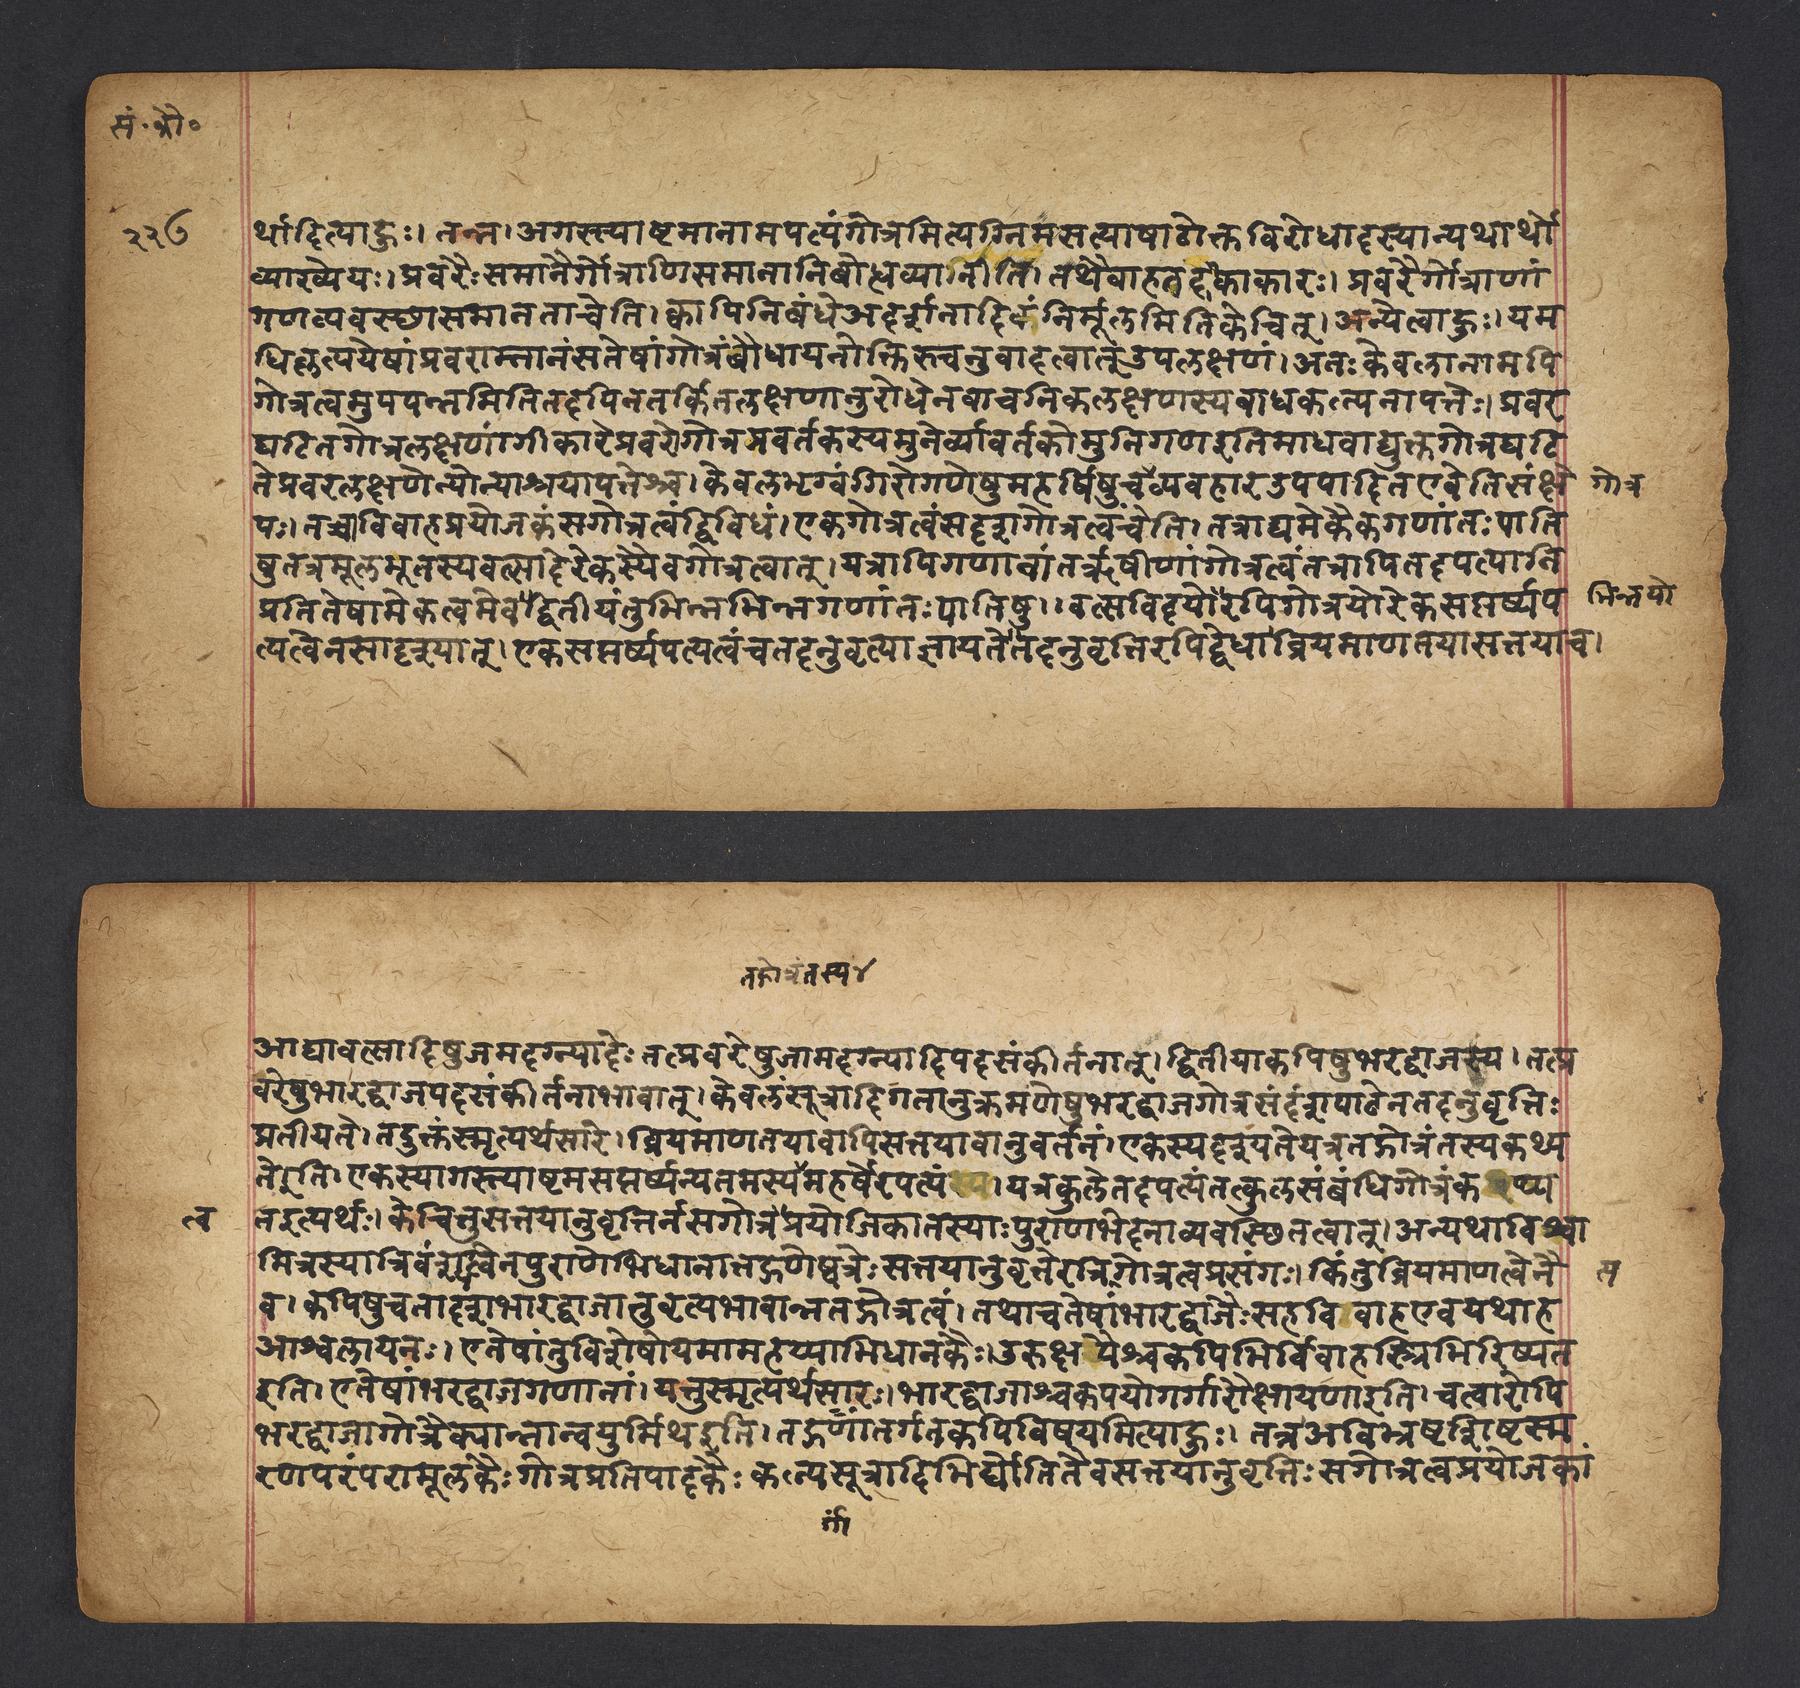 सं॰ कौ॰
२२७
र्थादित्याहुः। तन्न। अगस्त्याष्टमानामपत्यंगोत्रमित्यग्निमसत्याषाढोक्तविरोधादस्यान्यथार्थो
व्याख्येयः। प्रवरैःसमानैर्गोत्राणिसमानानिबोधव्यानीति। तथैवाहतट्टीकाकारः। प्रवरैर्गोत्राणां
गणव्यवस्थासमानताचेति। क्वापिनिबंधेअदर्शनादिदंनिर्मूलमितिकेचित्। अन्येत्वाहुः। यम
धिकृत्ययेषांप्रवराम्नानंसतेषांगोत्रंबौधायनोक्तिस्त्वनुवादत्वात्उपलक्षणं। अतःकेवलानामपि
गोत्रत्वमुपपन्नमितितदपिनतर्कितलक्षणानुरोधेनवाचनिकलक्षणस्यबाधकल्पनापत्तेः। प्रवर
घटितगोत्रलक्षणांगीकारेप्रवरोगोत्रप्रवर्तकस्यमुनेर्व्यावर्तकोमुनिगणइतिमाधवाद्युक्तगोत्रघटि
तेप्रवरलक्षणेन्योन्याश्रयापत्तेश्च। केवलभृग्वंगिरोगणेषुमहर्षिषुचव्यवहारउपपादितएवेतिसंक्षे गोत्र
पः। तच्चाविवाहप्रयोजकंसगोत्रत्वंद्विविधं। एकगोत्रत्वंसदृशगोत्रत्वंचेति। तत्राद्यमेकैकगणांतःपाति
षुतत्रमूलभूतस्यवत्सादेरेकस्यैवगोत्रत्वात्। यत्रापिगणानांतर्ऋषीणांगोत्रत्वंतत्रापितदपत्यानि
प्रतितेषामेकत्वमेवद्वितीयंतुभिन्नभिन्नगणांतःपातिषु।। वत्सविदयोरपिगोत्रयोरेकसप्तर्ष्यप भिन्नयो
त्यत्वेनसादृश्यात्। एकसप्तर्ष्यपत्यत्वंचतदनुवृत्याज्ञायतेतदनुवृत्तिरपिद्वेधाव्रियमाणतयासत्तयाच।
तद्गोत्रंतस्य४
आद्यावत्सादिषुजमदग्न्यादेः तत्प्रवरेषुजामदग्न्यादिपदसंकीर्तनात्। द्वितीयाकपिषुभरद्वाजस्य। तत्प्र
वरेषुभारद्वाजपदसंकीर्तनाभावात्। केवलंसूत्रादिगतानुक्रमणेषुभरद्वाजगोत्रसंदंशपाठेनतदनुवृत्तिः
प्रतीयते। तदुक्तंस्मृत्यर्थसारे। व्रियमाणतयावापिसत्तयावानुवर्तनं। एकस्यदृश्यतेयत्रतद्गोत्रंतस्यकथ्य
तेइति। एकस्यागस्त्याष्टमसप्तर्ष्यन्यतमस्यमहर्षेरपत्यं। यत्रकुलेतदपत्यंतत्कुलसंबंधिगोत्रंक
त्व तइत्यर्थः। केचित्तुसत्तयानुवृत्तिर्नसगोत्रप्रयोजिकातस्याःपुराणभेदेनाव्यवस्थितत्वात्। अन्यथाविश्वा
मित्रस्यात्रिवंशत्वेनपुराणेभिधानात्तद्गणेष्वत्रेःसत्तयानुवृत्तेरत्रिगोत्रत्वप्रसंगः। किंतुव्रियमाणत्वेनै त
व। कपिषुचतादृशभारद्वाजानुवृत्यभावान्नतद्गोत्रत्वं। तथाचतेषांभारद्वाजैःसहविवाहएवयथाह
आश्वलायनः। एतेषांतुविशेषोयमामहय्याभिधानकैः। उरुक्षयैश्चकपिभिर्विवाहस्त्रिभिरिष्यत
इति। एतेषांभरद्वाजगणानां। यत्तुस्मृत्यर्थसारः। भारद्वाजाश्चकपयोगर्गारौक्षायणाइति। चत्वारोपि
भरद्वाजागोत्रैक्यान्नान्वयुर्मिथइति। तद्गणांतर्गतकपिविषयमित्याहुः। तन्नअविभ्रष्टशिष्टस्म
रणपरंपरामूलकैःगोत्रप्रतिपादकैः कल्पसूत्रादिभिर्द्योतितैवसत्तयानुवृत्तिःसगोत्रत्वप्रयोजकां